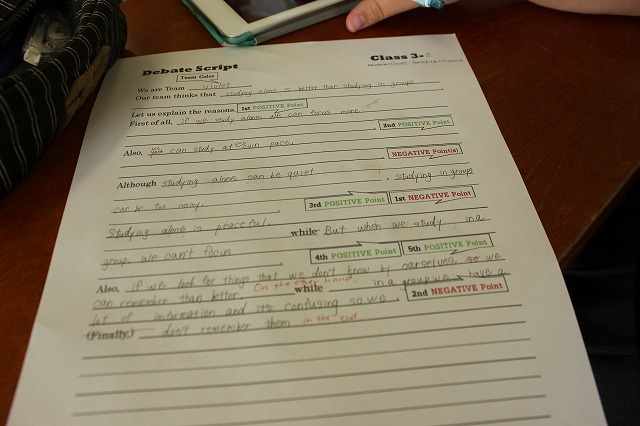 Debate Script
Class 3-
Team Color
We are Team Violet
Our team thinks that studying alone is better than studying in groups
Let us explain the reasons. 1st POSITIVE Point
First of all, if we study alone we can focus more.
2nd POSITIVE Point
Also, can study at own pace.
NEGATIVE Point(s)
Although studying alone can be quiet, studying in groups
can be too noisy.
3rd POSITIVE Point 1st NEGATIVE Point
Studying alone is peaceful. while But when we study in a
group, we can't focus
4th POSITIVE Point 5th POSITIVE Point
Also, if we look for things that we don't know by ourselves, so we
can remember than better. On the other hand, while in a group we have a
lot of information and its confusing so we 2nd NEGATIVE Point
(Finally,) don't remember them in the end